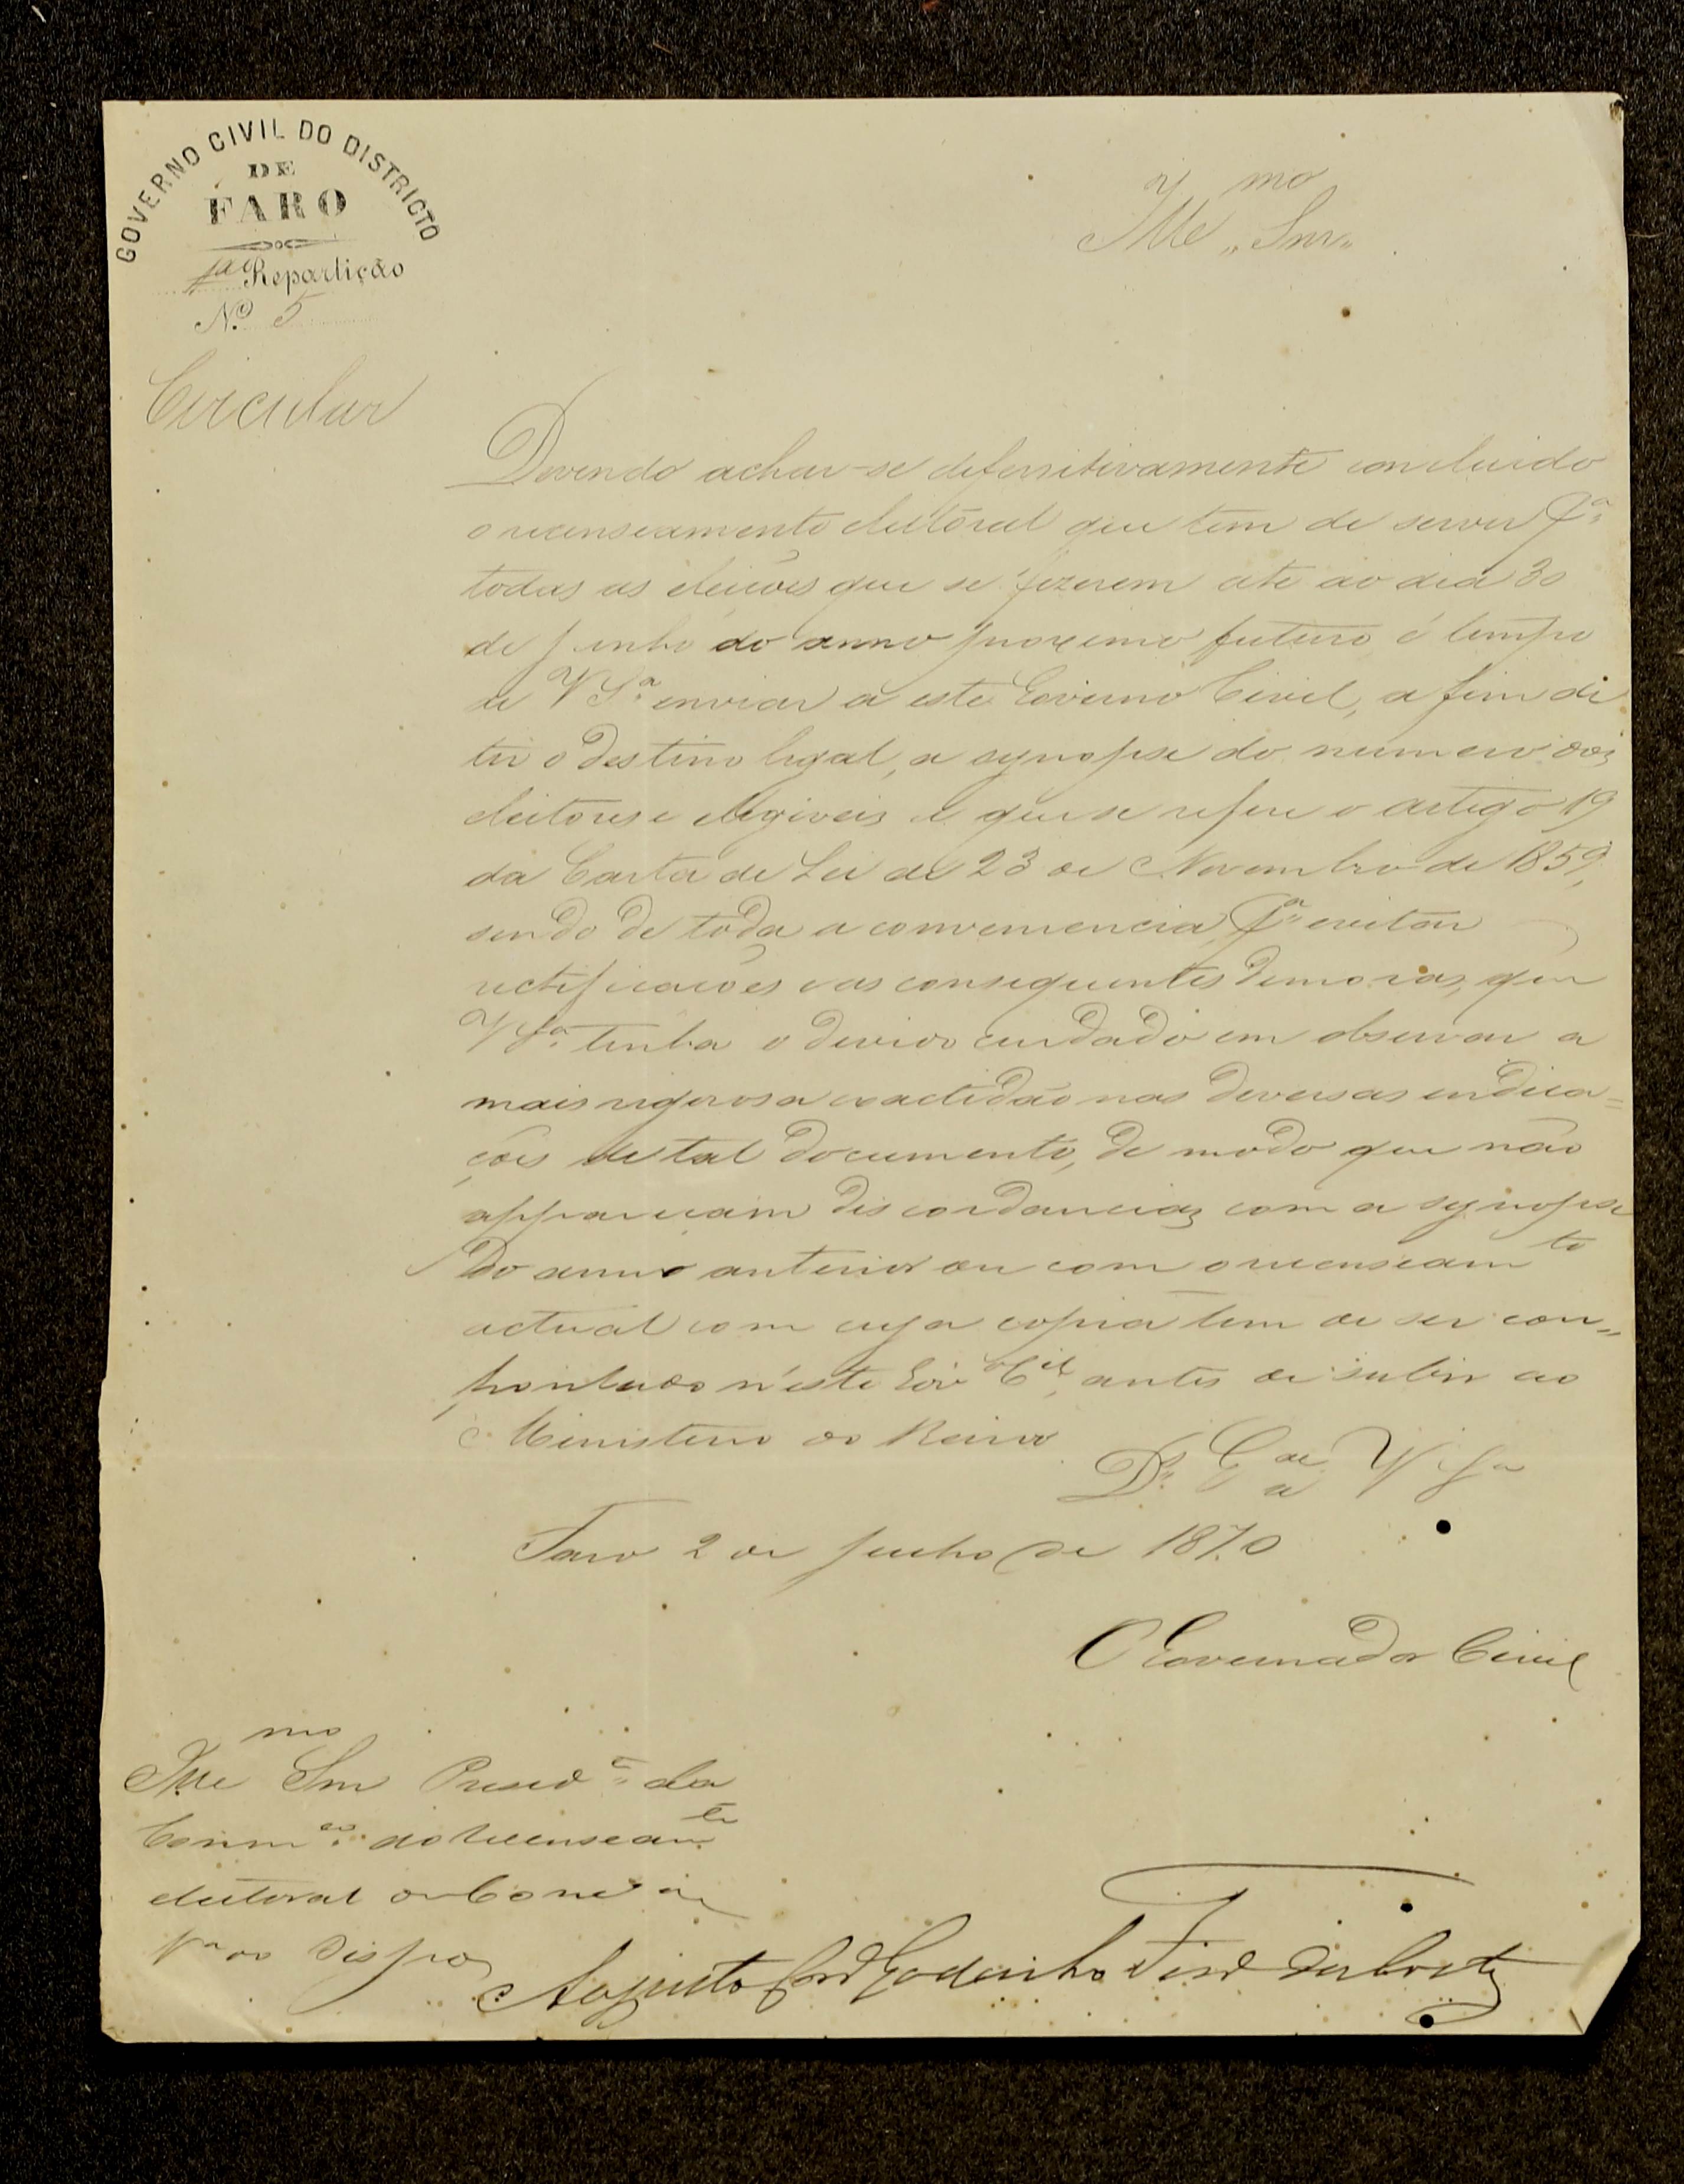 GOVERNO CIVIL DO DISTRICTO
DE
FARO
1ª Repartição
N.º 5
Illmo Snr
Circular
Devendo achar-se definitivamente concluido
o recenseamento eleitoral que tem de servir pª
todas as eleições que se fizerem até ao dia 30
de junho do anno proximo futuro é tempo
de V Sª enviar a este Governo Civil, a fim de
ter o destino legal, a synopse do numero dos
eleitores e elegiveis a que se refere o artigo 19
da Carta de Lei de 23 de Novembro de 1859,
sendo de toda a conveniencia pª evitar
rectificações e as consequentes demoras, que
V Sª tenha o devido cuidado em observar a
mais rigorosa exactidão nas diversas indica=
ções de tal documento, de modo que não
appareçam discordancias com a synopse
do anno anterior ou com o recenseamto
actual com cuja copia tem de ser con=
frontado n'este Gov Cil, antes de subir ao
Ministerio do Reino
Ds Gde a V Sª
Faro 2 de Junho de 1870
O Governador Civil
Illmo Snr Presidte da
Commão do recenseamto
eleitoral do Conc
Vª do Bispo
Augusto Godinho da Costa